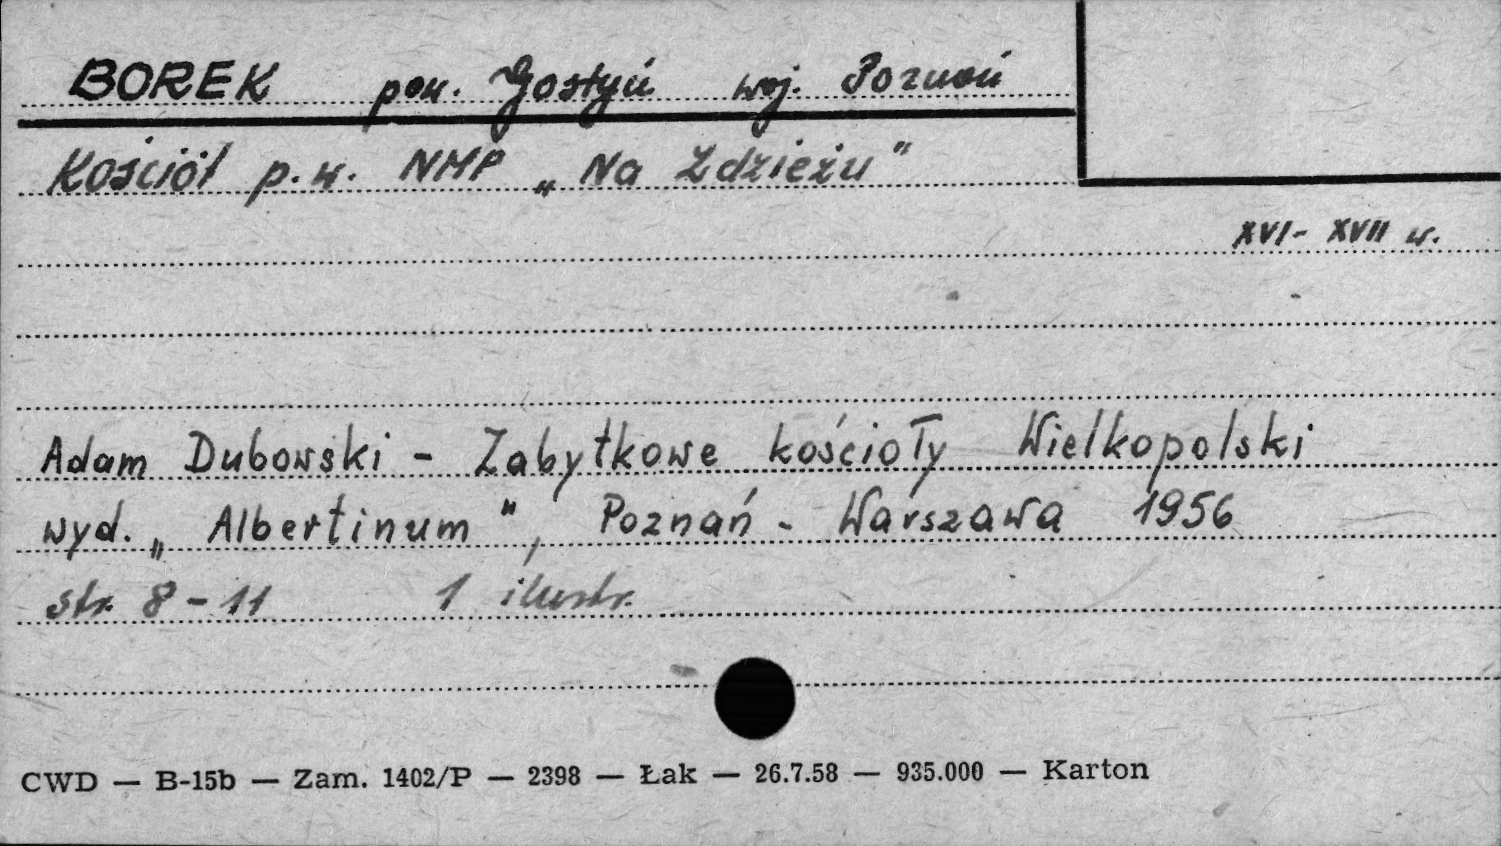 BOREK pow. Gostyń woj. Poznań
Kościół p.w. NMP „Na Zdzieżu"
XVI- XVII w.
Adam Dubowski - Zabytkowe kościoły Wielkopolski
wyd. „Albertinum", Poznań - Warszawa 1956
str. 8-11 1 ilustr.
CWD — B-15b — Zam. 1402/P — 2398 — Łak — 26.7.58 — 935.000 — Karton